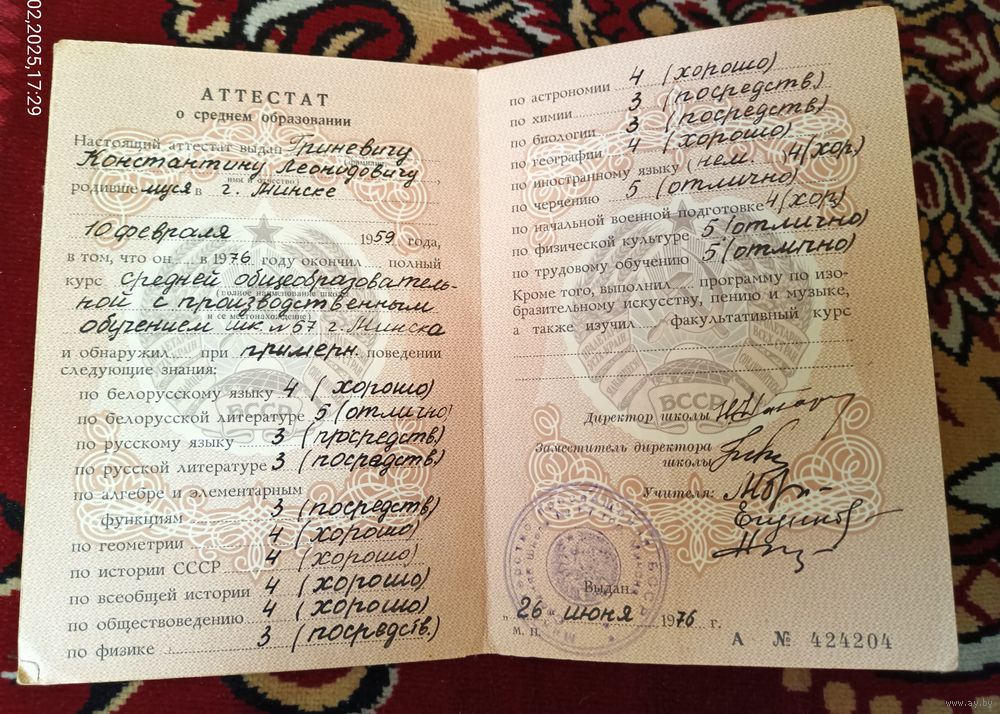 02,2025,17:29
АТТЕСТАТ
о среднем образовании
Настоящий аттестат выдан Гриневичу
(фамилия,
Константину Леонидовичу,
имя и отчество)
родившемуся в г. Минске
10 февраля 1959 года,
в том, что он в 1976 году окончил полный
курс средней общеобразователь-
(полное наименование школы
ной с производственным
и ее местонахождение)
обучением шк. №57 г. Минска
и обнаружил при примерн. поведении
следующие знания:
по белорусскому языку 4 (хорошо)
по белорусской литературе 5 (отлично)
по русскому языку 3 (посредств.)
по русской литературе 3 (посредств.)
по алгебре и элементарным
функциям 3 (посредств.)
по геометрии 4 (хорошо)
по истории СССР 4 (хорошо)
по всеобщей истории 4 (хорошо)
по обществоведению 4 (хорошо)
по физике 3 (посредств.)
БССР
по астрономии 4 (хорошо)
по химии 3 (посредств.)
по биологии 3 (посредств.)
по географии 4 (хорошо)
по иностранному языку (нем. 4 (хор)
по черчению 5 (отлично)
по начальной военной подготовке 4 (хор)
по физической культуре 5 (отлично)
по трудовому обучению 5 (отлично)
Кроме того, выполнил программу по изо-
бразительному искусству, пению и музыке,
а также изучил факультативный курс
БССР
Директор школы
Заместитель директора
школы
Учителя:
Выдан
" 26 июня 1976 г.
М. П.
А № 424204
www.ay.by